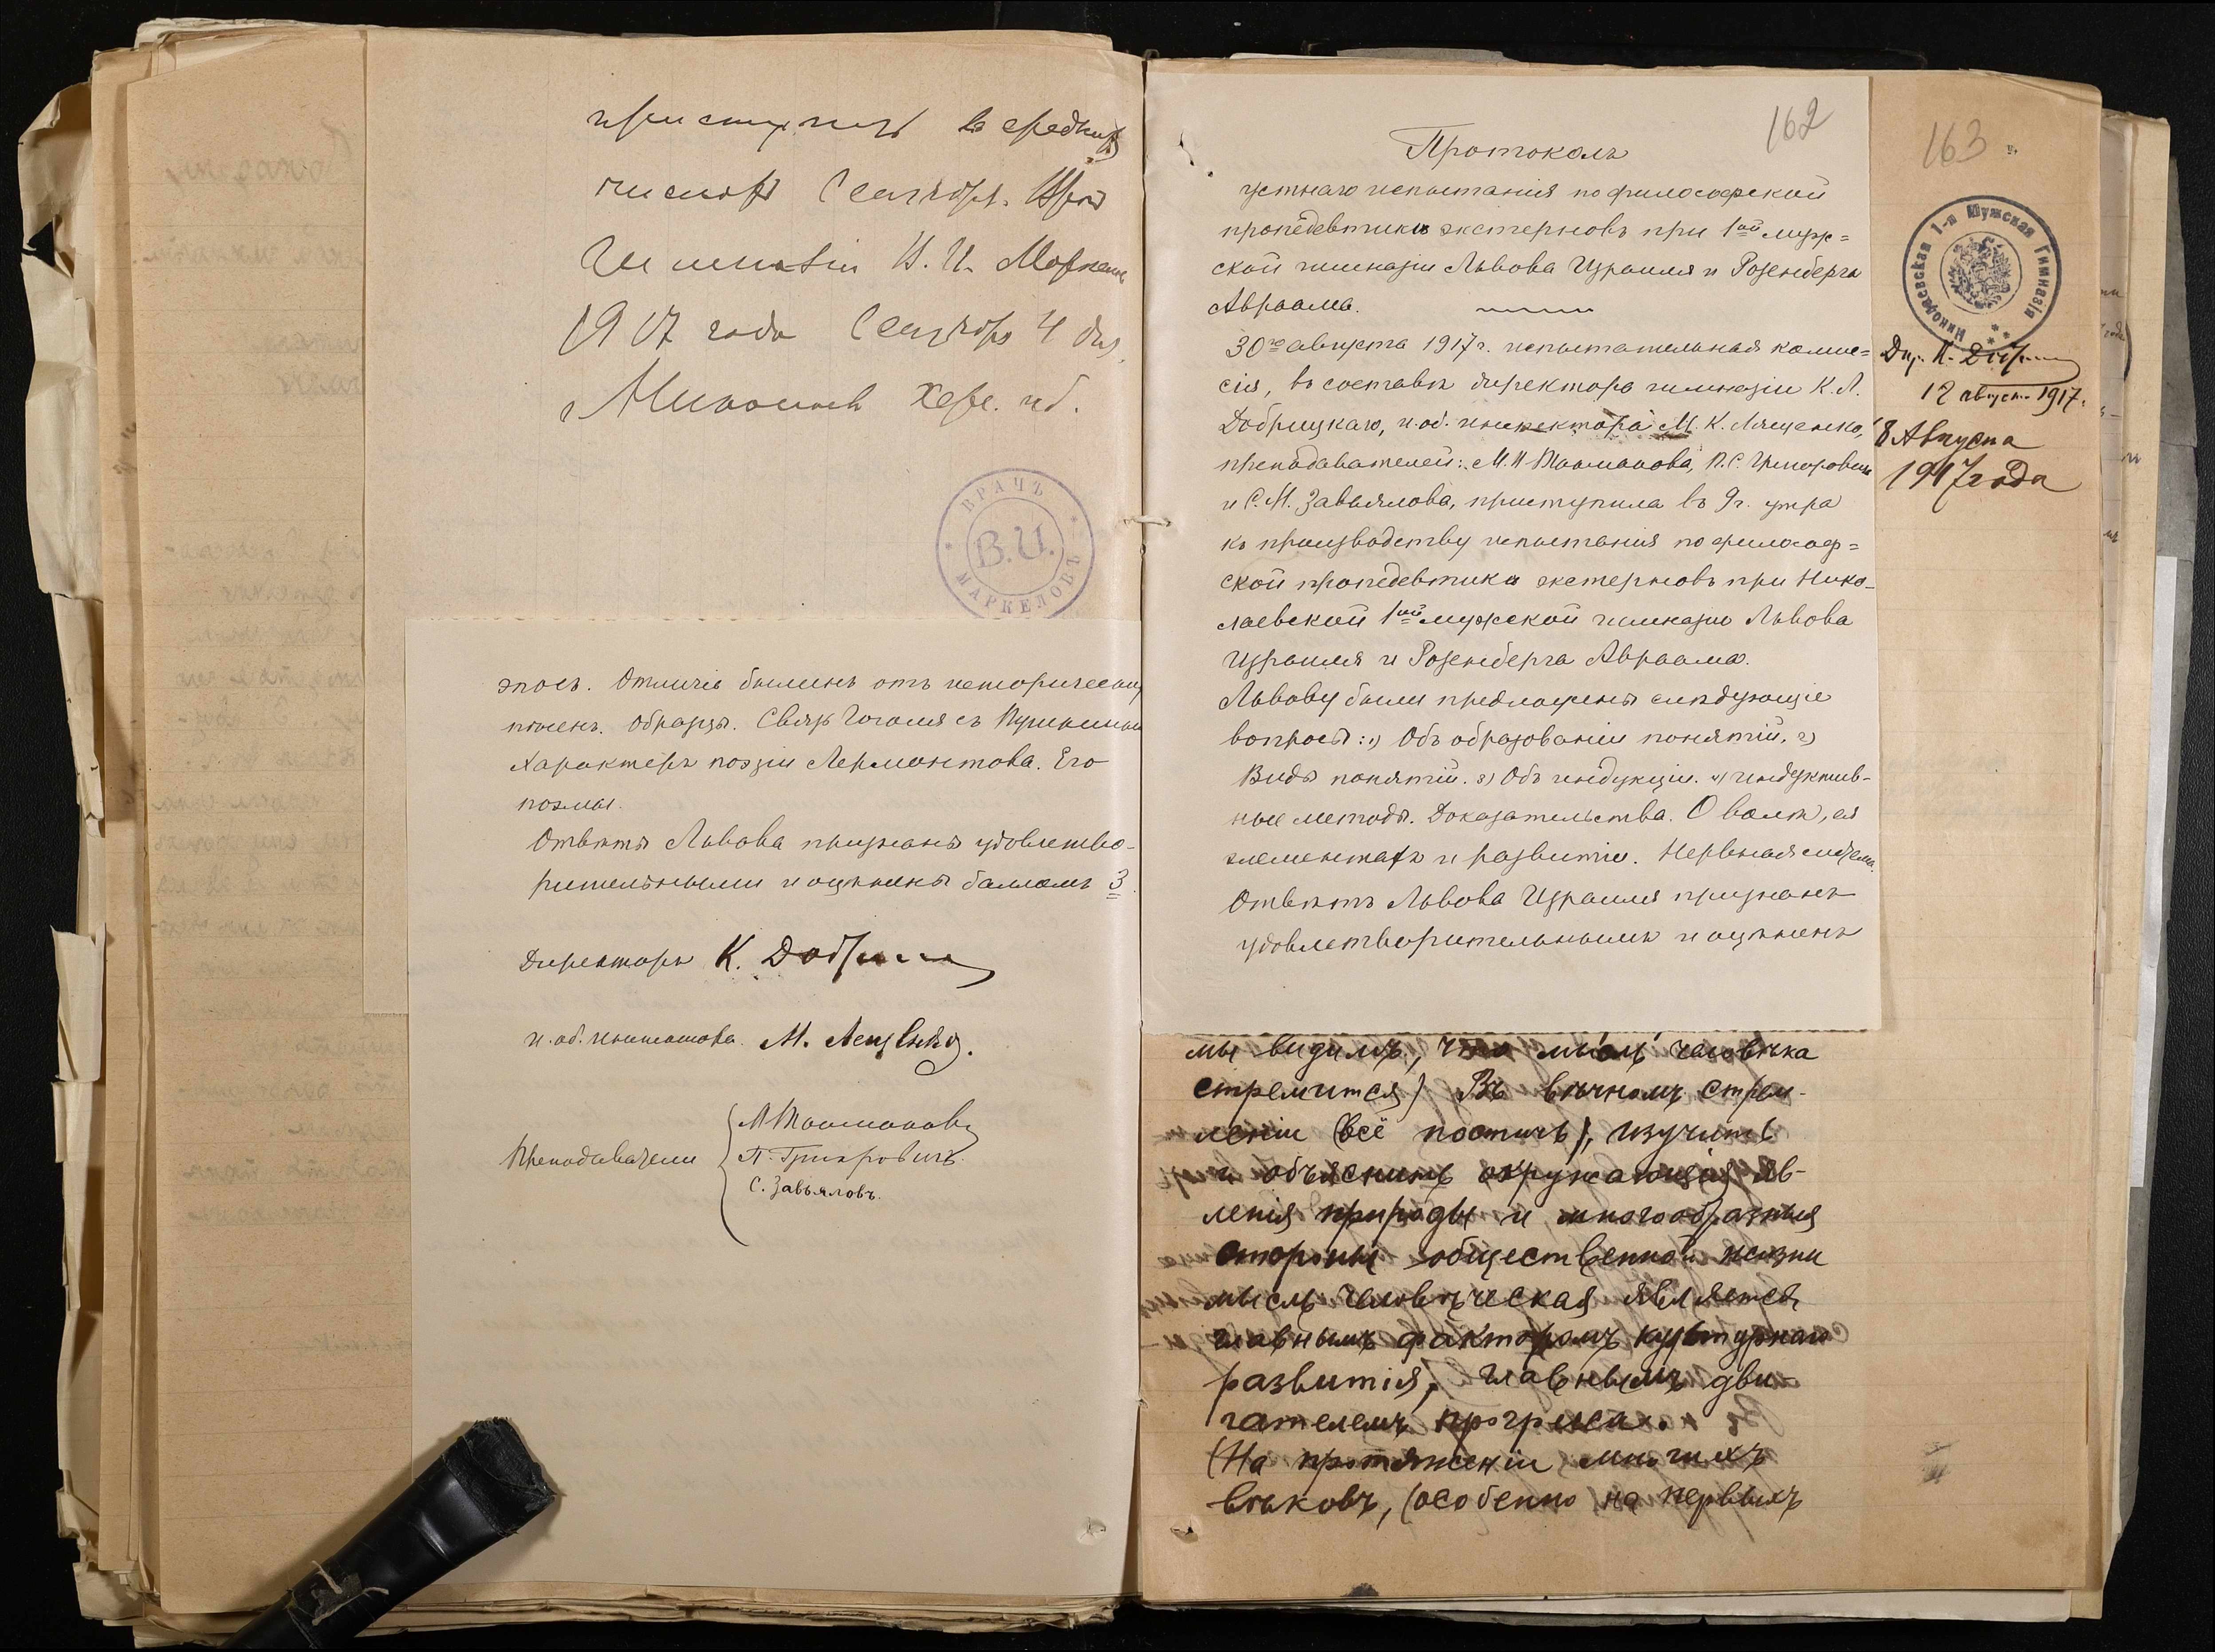 въ среднихъ
числахъ Сентября. Врачъ
Гимназіи В. И. Маркеловъ
1917 года Сентября 4 дня
г. Николаевъ Херс. губ.
ВРАЧЪ
В.И.
МАРКЕЛОВЪ
эпосъ. Отличіе былинъ отъ историческихъ
пѣсенъ. Образцы. Связь Гоголя съ Пушкинымъ
Характеръ поэзіи Лермонтова. Его
поэмы.
Отвѣты Львова признаны удовлетво-
рительными и оцѣнены балломъ 3.
Директоръ К. Добр
и. об. инспектора М. Лященко.
Преподаватели
П. Григоровичъ.
С. Завьяловъ.
162
Протоколъ
устнаго испытанія по философской
пропедевтикѣ экстерновъ при 1ой муж=
ской гимназіи Львова Израиля и Розенберга
Авраама.
30го августа 1917 г. испытательная комис=
сія, въ составѣ директора гимназіи К. Л.
Добрицкаго, и. об. инспектора М. К. Лященко,
преподавателей: П. С. Григоровича
и С. М. Завьялова, приступила въ 9 ч. утра
къ производству испытанія по философ=
ской пропедевтикѣ экстерновъ при Нико-
лаевской 1ой мужской гимназіи Львова
Израиля и Розенберга Авраама.
Львову были предложены слѣдующіе
вопросы: 1) Объ образованіи понятій. 2)
Виды понятій. 3) Объ индукціи. 4) Индуктив-
ные методы. Доказательства. О волѣ, ея
элементахъ и развитіи. Нервная система.
Отвѣтъ Львова Израиля признанъ
удовлетворительнымъ и оцѣненъ
163
Николаевская 1-я Мужская Гимназія
Дир. К. Добр
12 август. 1917 г.
8 Августа
1917 года
мы видимъ, что мысль человѣка
стремится) Въ вѣчномъ стрем-
леніи (всё постичь), изучить
и объяснить окружающія яв-
ленія природы и многообразныя
стороны общественной жизни
мысль человѣческая является
главнымъ факторомъ культурнаго
развитія, главнымъ дви-
гателемъ прогресса.
(На протяженіи многихъ
вѣковъ, (особенно на первыхъ